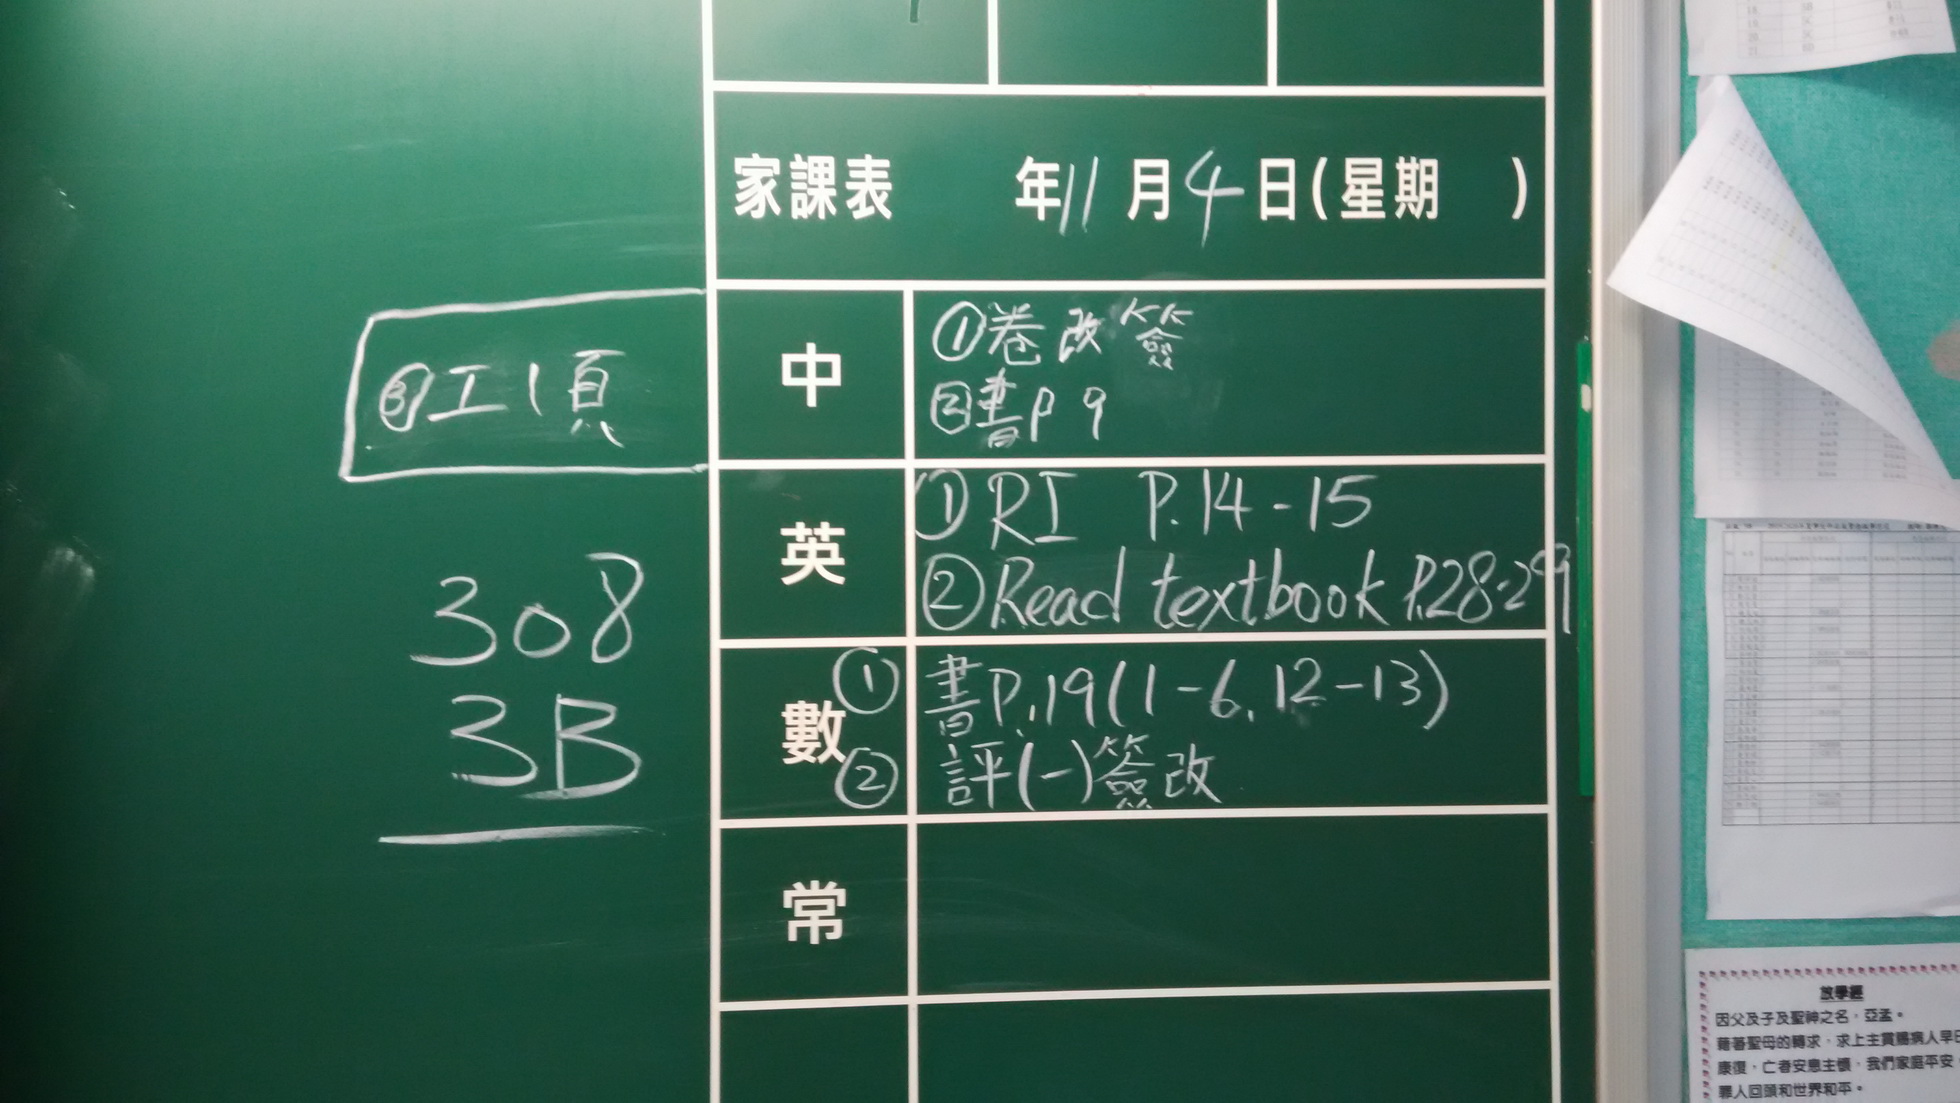 家課表 年11月4日(星期 )
中
①卷改簽
②書P9
③工1頁
英
①RI P.14-15
②Read textbook P.28-29
數
①書P.19(1-6.12-13)
②評(一)簽改
常
308
3B
放學經
因父及子及聖神之名，亞孟。
藉著聖母的轉求，求上主賞賜病人早日
康復，亡者安息主懷，我們家庭平安，
罪人回頭和世界和平。